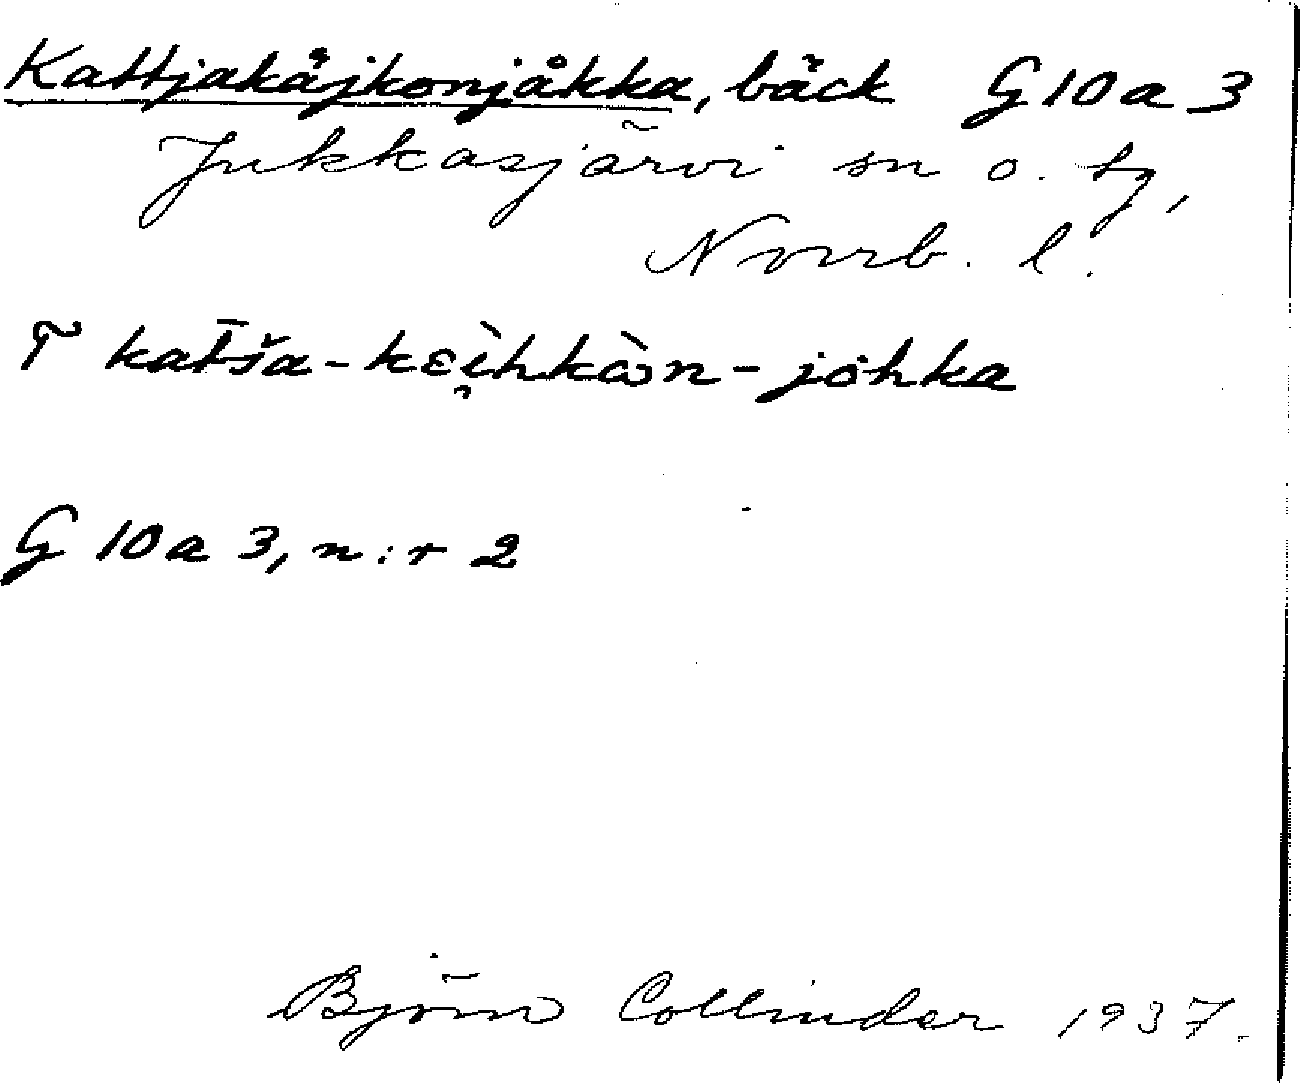 Kattjakåjkonjåkka, bäck G 10 a 3
Jukkasjärvi sn o. tg,
Norrb. l.
T kat̄ša-kɛì̯hkὰn-jòhka
G 10 a 3, n:r 2
Björn Collinder 1937.